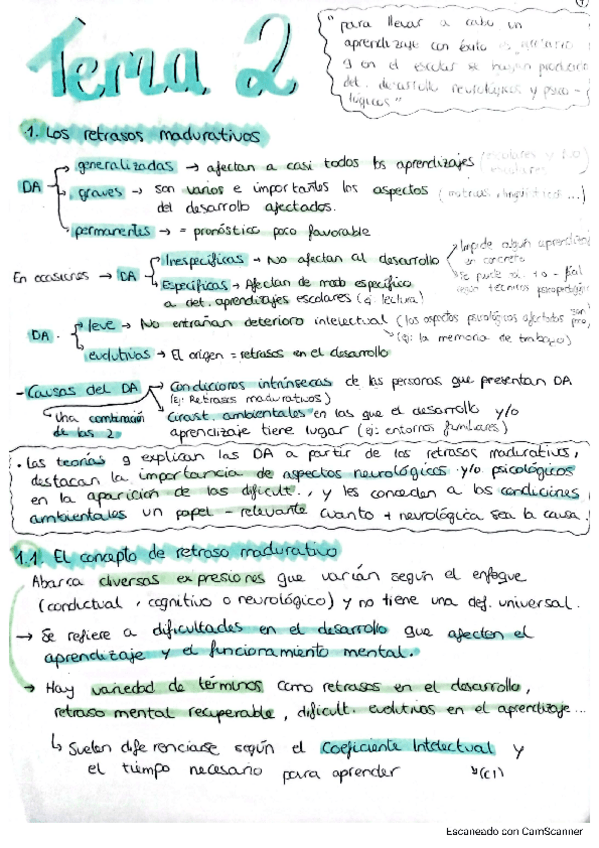 Tema 2
"para llevar a cabo un
aprendizaje con éxito es necesario
q en el escolar se hayan producido
det. desarrollo neurológicos y psico-
lógicos"
1. Los retrasos madurativos
DA
generalizadas → afectan a casi todos los aprendizajes (escolares y no
escolares
graves → son varios e importantes los aspectos (motrices, lingüísticos ...)
del desarrollo afectados.
permanentes → = pronóstico poco favorable
En ocasiones → DA
Inespecíficas → No afectan al desarrollo
Impide algún aprendizaje
en concreto
Específicas → Afectan de modo específico
a det. aprendizajes escolares (ej: lectura)
se puede
según técnicas psicopedagógicas
DA.
leve → No entrañan deterioro intelectual (los aspectos psicológicos afectados son
(ej: la memoria de trabajo)
evolutivas → El origen = retrasos en el desarrollo
- Causas del DA
Condiciones intrínsecas de las personas que presentan DA
(ej: Retrasos madurativos)
Una combinación
de las 2.
Circust. ambientales en las que el desarrollo y/o
aprendizaje tiene lugar (ej: entornos familiares)
• Las teorías q explican las DA a partir de los retrasos madurativos,
destacan la importancia de aspectos neurológicos y/o psicológicos
en la aparición de las dificult., y les conceden a las condiciones
ambientales un papel - relevante cuanto + neurológica sea la causa.
1.1. El concepto de retraso madurativo
Abarca diversas expresiones que varían según el enfoque
(conductual, cognitivo o neurológico) y no tiene una def. universal.
→ Se refiere a dificultades en el desarrollo que afecten el
aprendizaje y el funcionamiento mental.
→ Hay variedad de términos como retrasos en el desarrollo,
retraso mental recuperable, dificult. evolutivas en el aprendizaje...
↳ Suelen diferenciarse según el Coeficiente Intelectual y
(CI)
el tiempo necesario para aprender
Escaneado con CamScanner